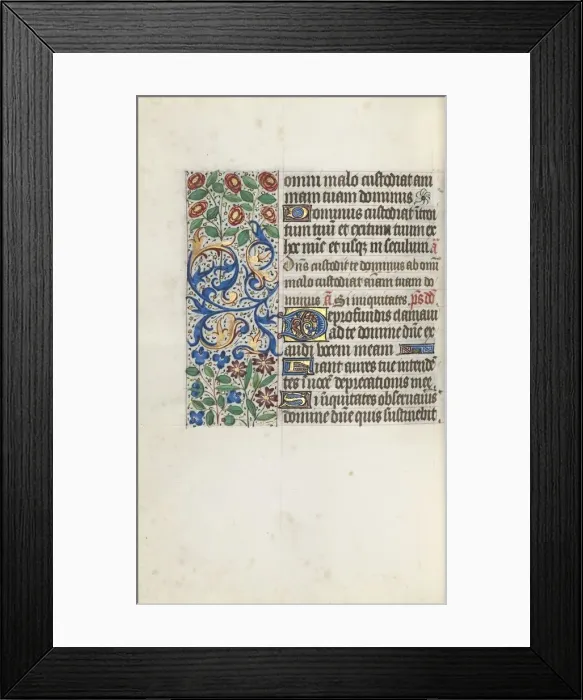 omni malo custodiat ani
mam tuam dominus
Dominus custodiat introi
tum tuũ et exitum tuum ex
hoc nũc et usqʒ in seculum ã
Dñs custodit te dominus ab omni
malo custodiat aĩam tuam do
minus ã Si iniquitates p̃s dd
De profundis clamaui
ad te domine dñe ex
audi vocem meam
Fiant aures tue intendẽ
tes ĩ vocẽ deprecationis mee
Si iñquitates obseruauus
domine dñe quis sustinebit